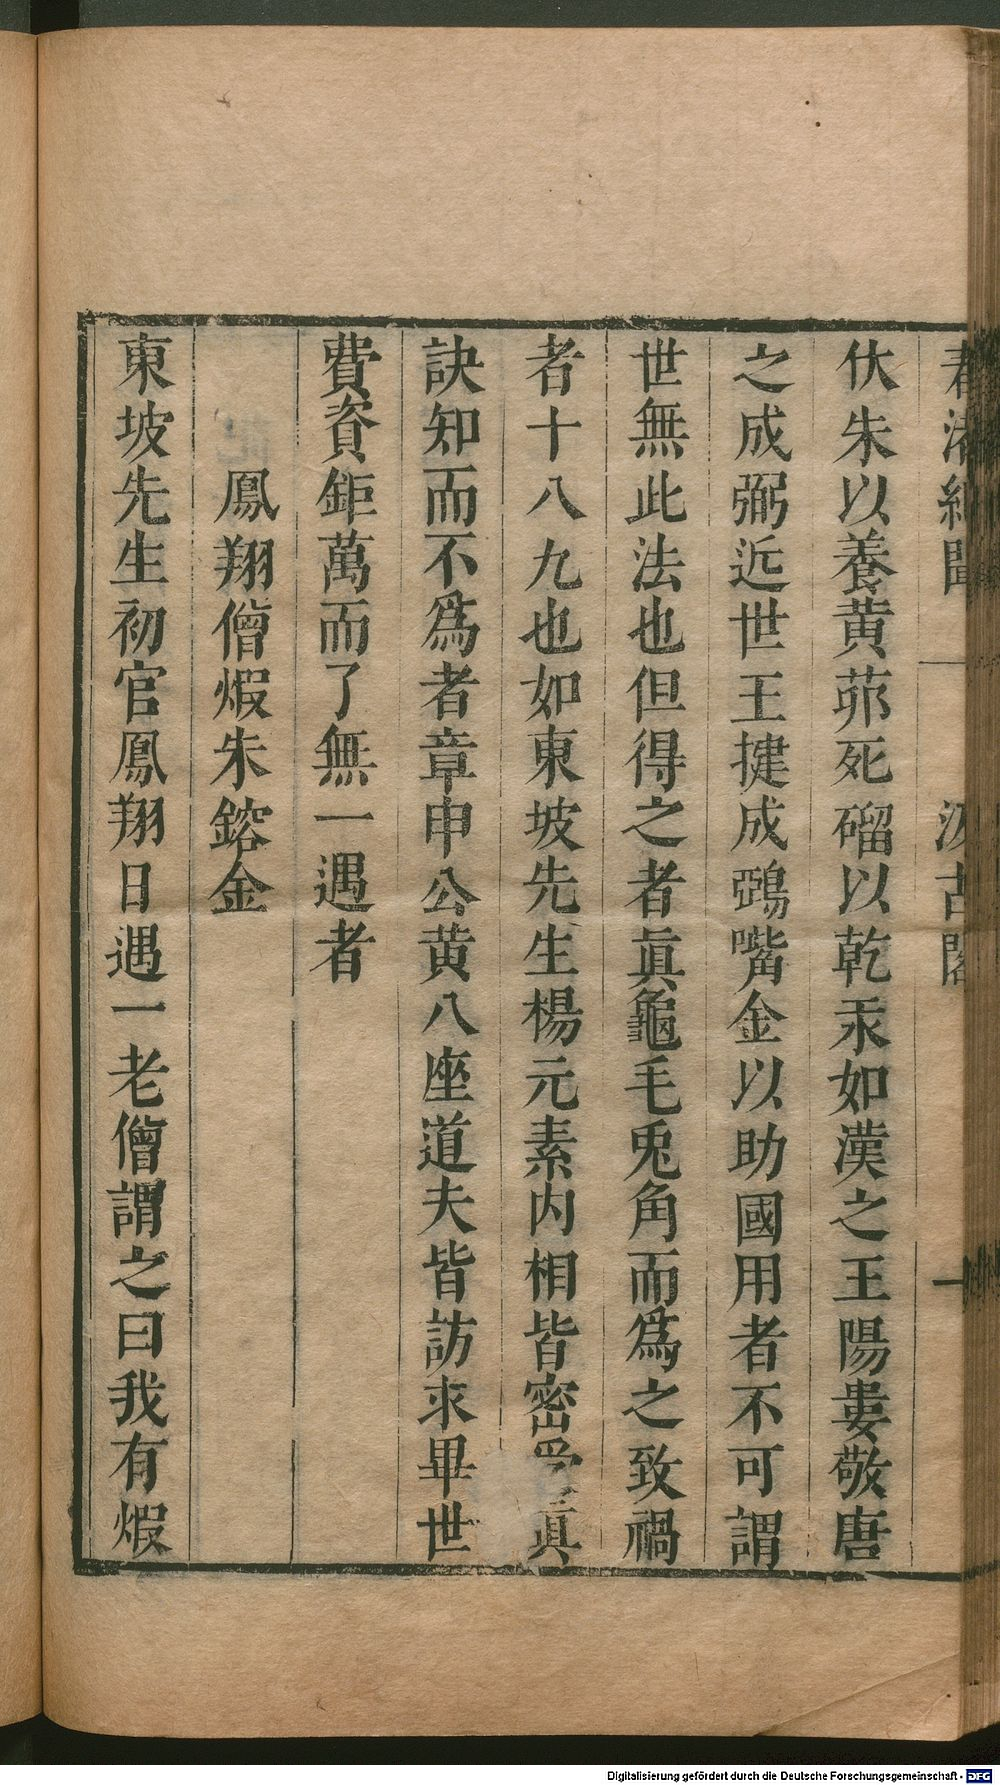 春渚紀聞 汲古閣
伏朱以養黄茆死磂以乾汞如漢之王陽婁敬唐
之成弼近世王捷成鵶嘴金以助國用者不可謂
世無此法也但得之者眞龜毛兎角而爲之致禍
者十八九也如東坡先生楊元素内相皆密受眞
訣知而不爲者章申公黄八座道夫皆訪求畢世
費資鉅萬而了無一遇者
鳳翔僧煆朱鎔金
東坡先生初官鳳翔日遇一老僧謂之曰我有煆
Digitalisierung gefördert durch die Deutsche Forschungsgemeinschaft - DFG